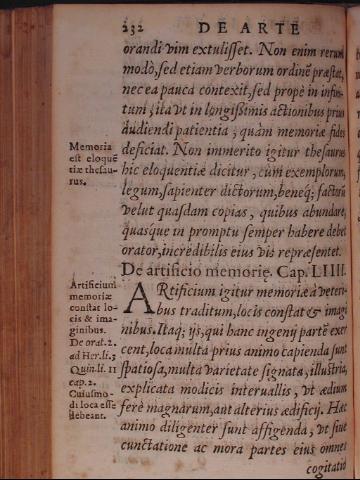 232 DE ARTE
orandi vim extulisset. Non enim rerum
modò, sed etiam verborum ordinē præstat,
nec ea pauca contexit, sed propè in infini-
tum; ita vt in longißimis actionibus prius
audiendi patientia, quàm memoriæ fides
deficiat. Non immerito igitur thesaurus
hic eloquentiæ dicitur, cùm exemplorum,
legum, sapienter dictorum, beneq; factorū
velut quasdam copias, quibus abundare,
quasque in promptu semper habere debet
orator, incredibilis eius vis repræsentet.
Memoria
est eloquē
tiæ thesau-
rus.
De artificio memorię. Cap. LIIII.
ARtificium igitur memoriæ à veteri-
bus traditum, locis constat & imagi
nibus. Itaq; ij, qui hanc ingenij partē exer
cent, loca multa prius animo capienda sunt
spatiosa, multa varietate signata, illustria,
explicata modicis interuallis, vt ædium
ferè magnarum, aut alterius ædificij. Hæc
animo diligenter sunt affigenda, vt sine
cunctatione ac mora partes eius omnes
cogitatio
Artificium
memoriæ
constat lo-
cis & ima-
ginibus.
De orat. 2.
ad Her. li. 3
Quin. li. 11
cap. 2.
Cuiusmo-
di loca esse
debeant.